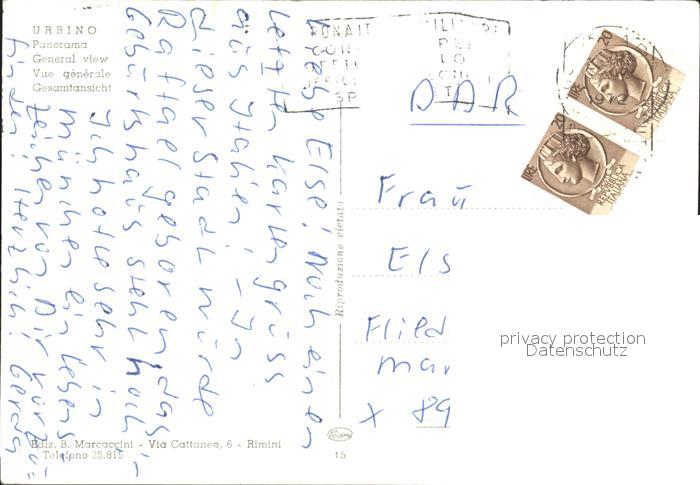 URBINO
Panorama
General view
Vue générale
Gesamtansicht
Liebe Else! Noch einen
letzten Kartengruss
aus Italien! - In
dieser Stadt wurde
Raffael geboren, das
Geburtshaus steht noch.
Ich hoffe sehr in
München ein Lebens-
zeichen von Dir vorzu-
finden! Herzlich! Gerda
Ediz. B. Marcaccini - Via Cattaneo, 6 - Rimini
Telefono 25.815
Riproduzione vietata
15
DDR
Frau
Els
Flied
Mar
x 89
LIRE 20
REPUBBLICA
ITALIANA
LIRE 20
REPUBBLICA
ITALIANA
1972
privacy protection
Datenschutz